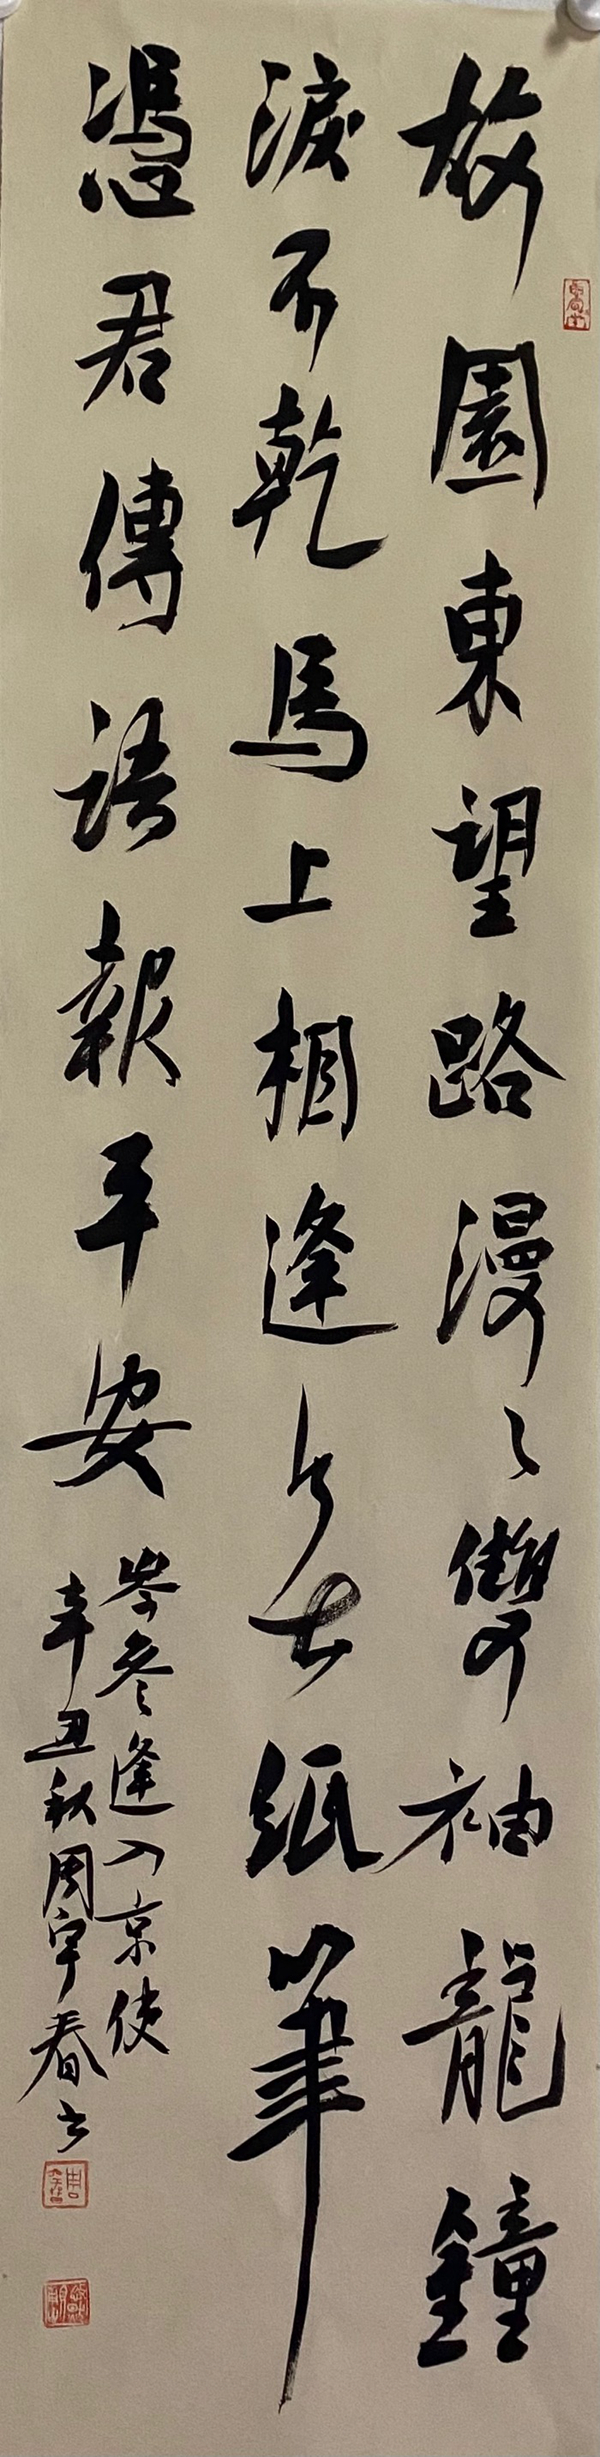 故園東望路漫〻雙袖龍鐘
淚不乾馬上相逢無紙筆
憑君傳語報平安
岑參逢入京使
辛丑秋周宇春書